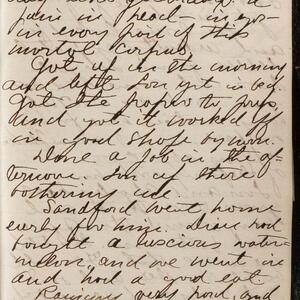 pain in head - in
in every part of this
mortal corpus.
Got up in the morning
and left Lon yet in bed
Got the paper to press,
and got it worked off
in good shape by noon.
Done a job in the af-
ternoon. Lon up there
bothering me.
Sandford went home
early for him. Dire had
bought a luscious water-
melon and we went in
and had a good eat.
Raining very hard and